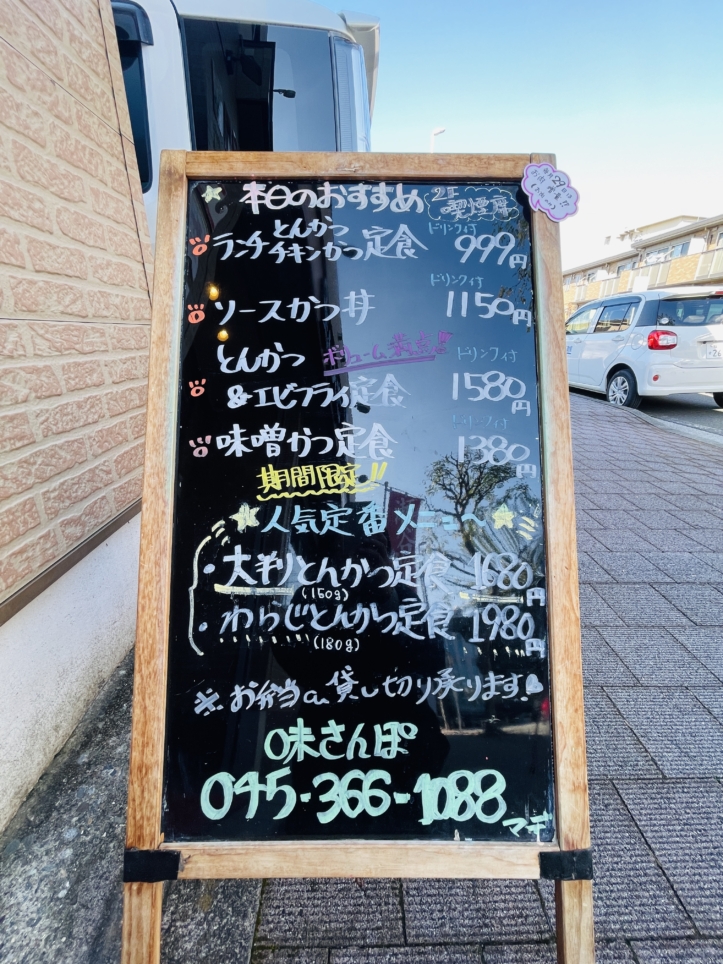 本日のおすすめ
2F
喫煙席
とんかつ
ランチ チキンかつ 定食 999円
ドリンク付
ソースかつ丼 1150円
ドリンク付
とんかつ ボリューム満点!!
&エビフライ定食 1580円
ドリンク付
味噌かつ定食 1380円
ドリンク付
期間限定!!
人気定番メニュ〜
・大判とんかつ定食 1680円
(150g)
・わらじとんかつ定食 1980円
(180g)
※お弁当a貸し切り承ります!
味さんぽ
045-366-1088
マデ